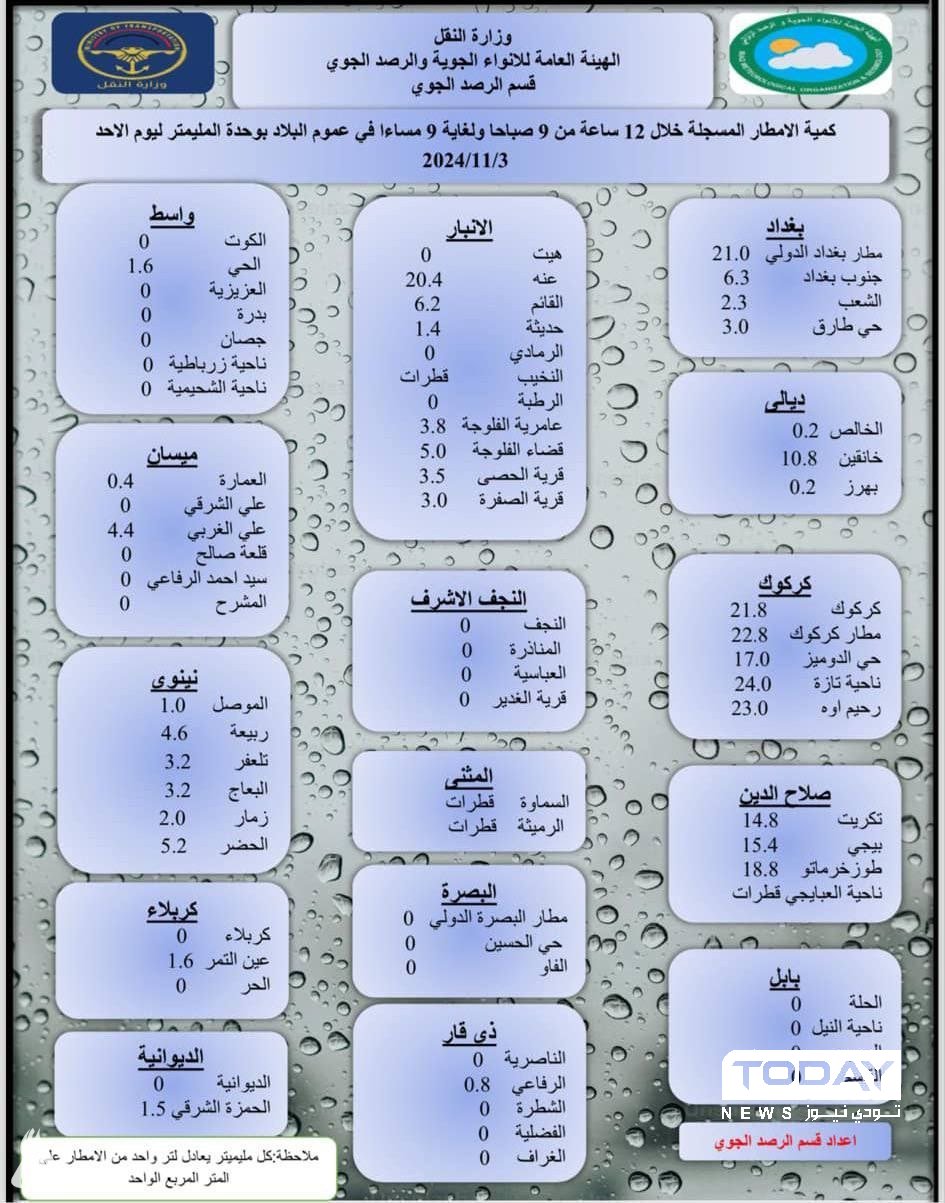 وزارة النقل
الهيئة العامة للانواء الجوية والرصد الجوي
قسم الرصد الجوي
MINISTRY OF TRANSPORTATION
وزارة النقل
الهيئة العامة للأنواء الجوية و الرصد الزلزالي
IRAQ METEOROLOGICAL ORGANIZATION & SEISMOLOGY
كمية الامطار المسجلة خلال 12 ساعة من 9 صباحا ولغاية 9 مساءا في عموم البلاد بوحدة المليمتر ليوم الاحد
2024/11/3
بغداد
مطار بغداد الدولي 21.0
جنوب بغداد 6.3
الشعب 2.3
حي طارق 3.0
ديالى
الخالص 0.2
خانقين 10.8
بهرز 0.2
كركوك
كركوك 21.8
مطار كركوك 22.8
حي الدوميز 17.0
ناحية تازة 24.0
رحيم اوه 23.0
صلاح الدين
تكريت 14.8
بيجي 15.4
طوزخرماتو 18.8
ناحية العبايجي قطرات
بابل
الحلة 0
ناحية النيل 0
0
0
الانبار
هيت 0
عنه 20.4
القائم 6.2
حديثة 1.4
الرمادي 0
النخيب قطرات
الرطبة 0
عامرية الفلوجة 3.8
قضاء الفلوجة 5.0
قرية الحصى 3.5
قرية الصفرة 3.0
النجف الاشرف
النجف 0
المناذرة 0
العباسية 0
قرية الغدير 0
المثنى
السماوة قطرات
الرميثة قطرات
البصرة
مطار البصرة الدولي 0
حي الحسين 0
الفاو 0
ذي قار
الناصرية 0
الرفاعي 0.8
الشطرة 0
الفضلية 0
الغراف 0
واسط
الكوت 0
الحي 1.6
العزيزية 0
بدرة 0
جصان 0
ناحية زرباطية 0
ناحية الشحيمية 0
ميسان
العمارة 0.4
علي الشرقي 0
علي الغربي 4.4
قلعة صالح 0
سيد احمد الرفاعي 0
المشرح 0
نينوى
الموصل 1.0
ربيعة 4.6
تلعفر 3.2
البعاج 3.2
زمار 2.0
الحضر 5.2
كربلاء
كربلاء 0
عين التمر 1.6
الحر 0
الديوانية
الديوانية 0
الحمزة الشرقي 1.5
TODAY
NEWS تودي نيوز
اعداد قسم الرصد الجوي
ملاحظة:كل مليميتر يعادل لتر واحد من الامطار على
المتر المربع الواحد